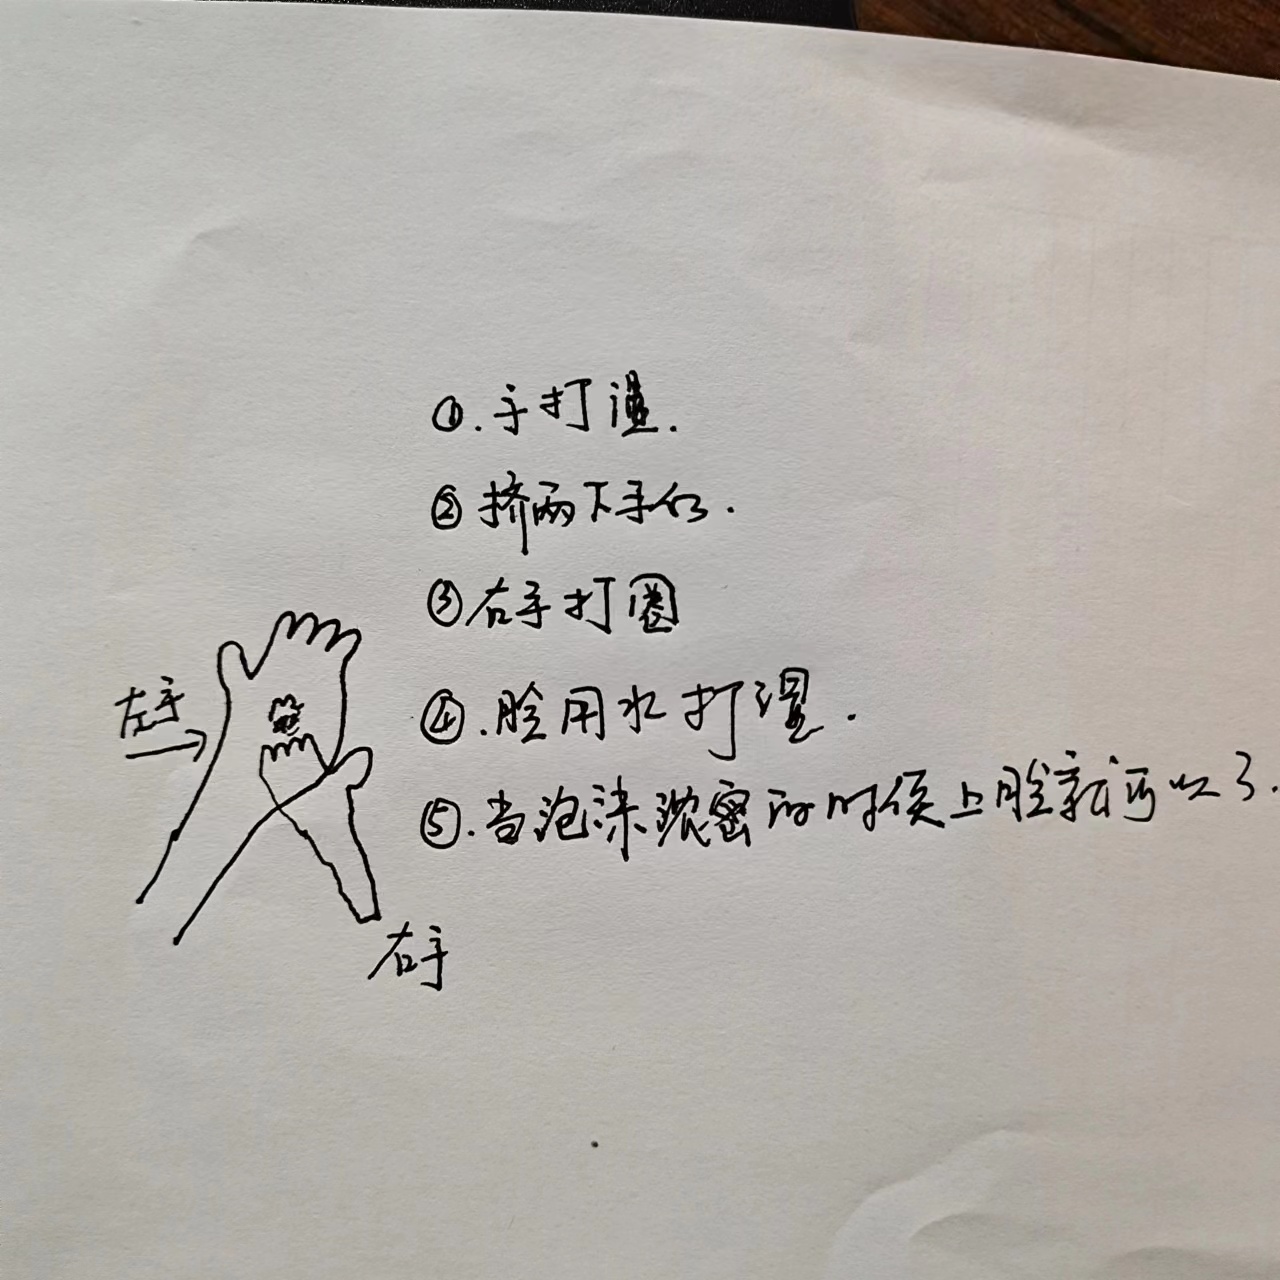 ①.手打湿.
②挤两下手心.
③右手打圈
④.脸用水打湿.
⑤.当泡沫浓密的时候上脸就可以了.
左手
右手